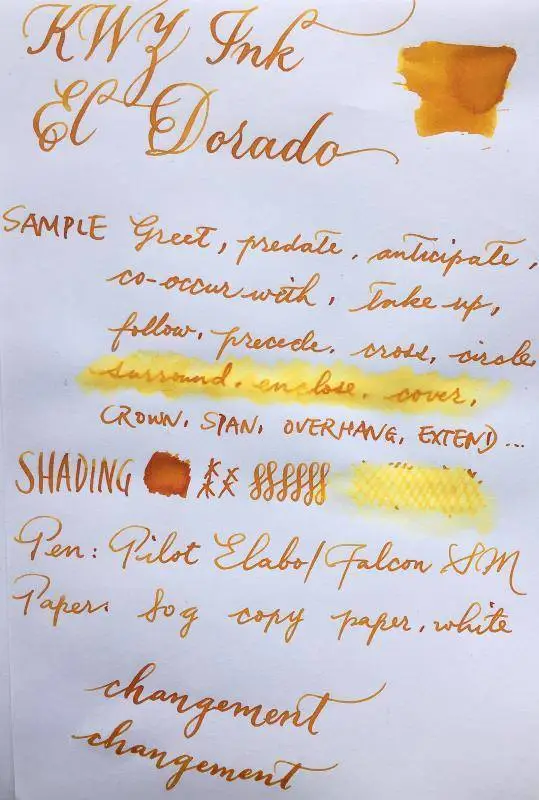 KWZ Ink
El Dorado
SAMPLE Greet, predate, anticipate,
co-occur with, take up,
follow, precede, cross, circle,
surround, enclose, cover,
CROWN, SPAN, OVERHANG, EXTEND...
SHADING
Pen: Pilot Elabo/Falcon SM
Paper: 80g copy paper, white
changement
changement